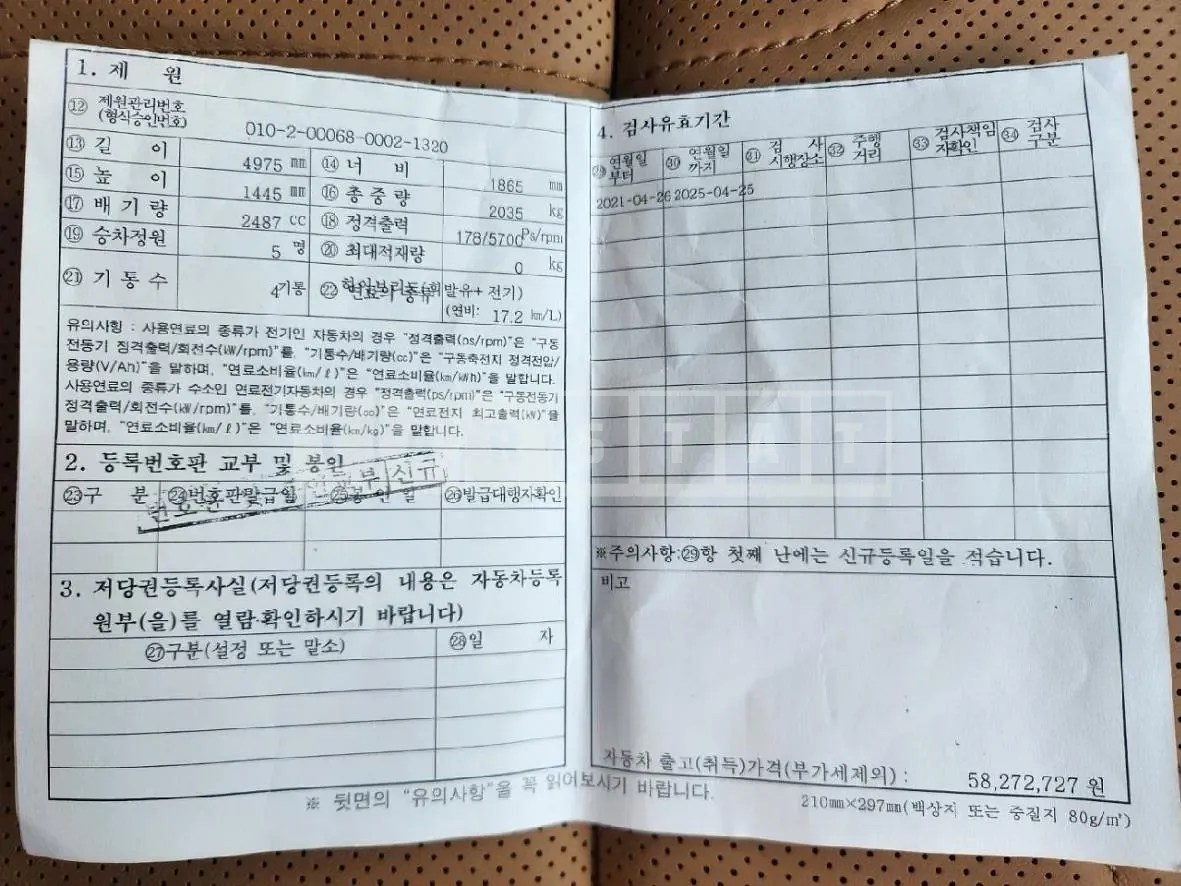 1. 제 원
⑫ 제원관리번호
(형식승인번호)
010-2-00068-0002-1320
⑬ 길 이 4975 mm ⑭ 너 비 1865 mm
⑮ 높 이 1445 mm ⑯ 총 중 량 2035 kg
⑰ 배 기 량 2487 cc ⑱ 정격출력 178/5700 Ps/rpm
⑲ 승차정원 5 명 ⑳ 최대적재량 0 kg
㉑ 기 통 수 4 기통 ㉒ 연료의 종류 하이브리드(휘발유+ 전기)
(연비: 17.2 km/L)
유의사항 : 사용연료의 종류가 전기인 자동차의 경우 "정격출력(ps/rpm)"은 "구동
전동기 정격출력/회전수(kW/rpm)"를, "기통수/배기량(cc)"은 "구동축전지 정격전압/
용량(V/Ah)"을 말하며, "연료소비율(km/ℓ)"은 "연료소비율(km/kWh)"을 말합니다.
사용연료의 종류가 수소인 연료전기자동차의 경우 "정격출력(ps/rpm)"은 "구동전동기
정격출력/회전수(kW/rpm)"를, "기통수/배기량(cc)"은 "연료전지 최고출력(kW)"을
말하며, "연료소비율(km/ℓ)"은 "연료소비율(km/kg)"을 말합니다.
2. 등록번호판 교부 및 봉인
㉓구 분 ㉔번호판발급일 ㉕봉 인 일 ㉖발급대행자확인
번호판 부 신규
3. 저당권등록사실(저당권등록의 내용은 자동차등록
원부(을)를 열람·확인하시기 바랍니다)
㉗구분(설정 또는 말소) ㉘일 자
※ 뒷면의 "유의사항"을 꼭 읽어보시기 바랍니다.
4. 검사유효기간
㉙ 연월일
부터
㉚ 연월일
까지
㉛ 검 사
시행장소
㉜ 주행
거리
㉝ 검사책임
자확인
㉞ 검사
구분
2021-04-26 2025-04-25
※주의사항:㉙항 첫째 난에는 신규등록일을 적습니다.
비고
자동차 출고(취득)가격(부가세제외) : 58,272,727 원
210mm×297mm(백상지 또는 중질지 80g/㎡)
STAT